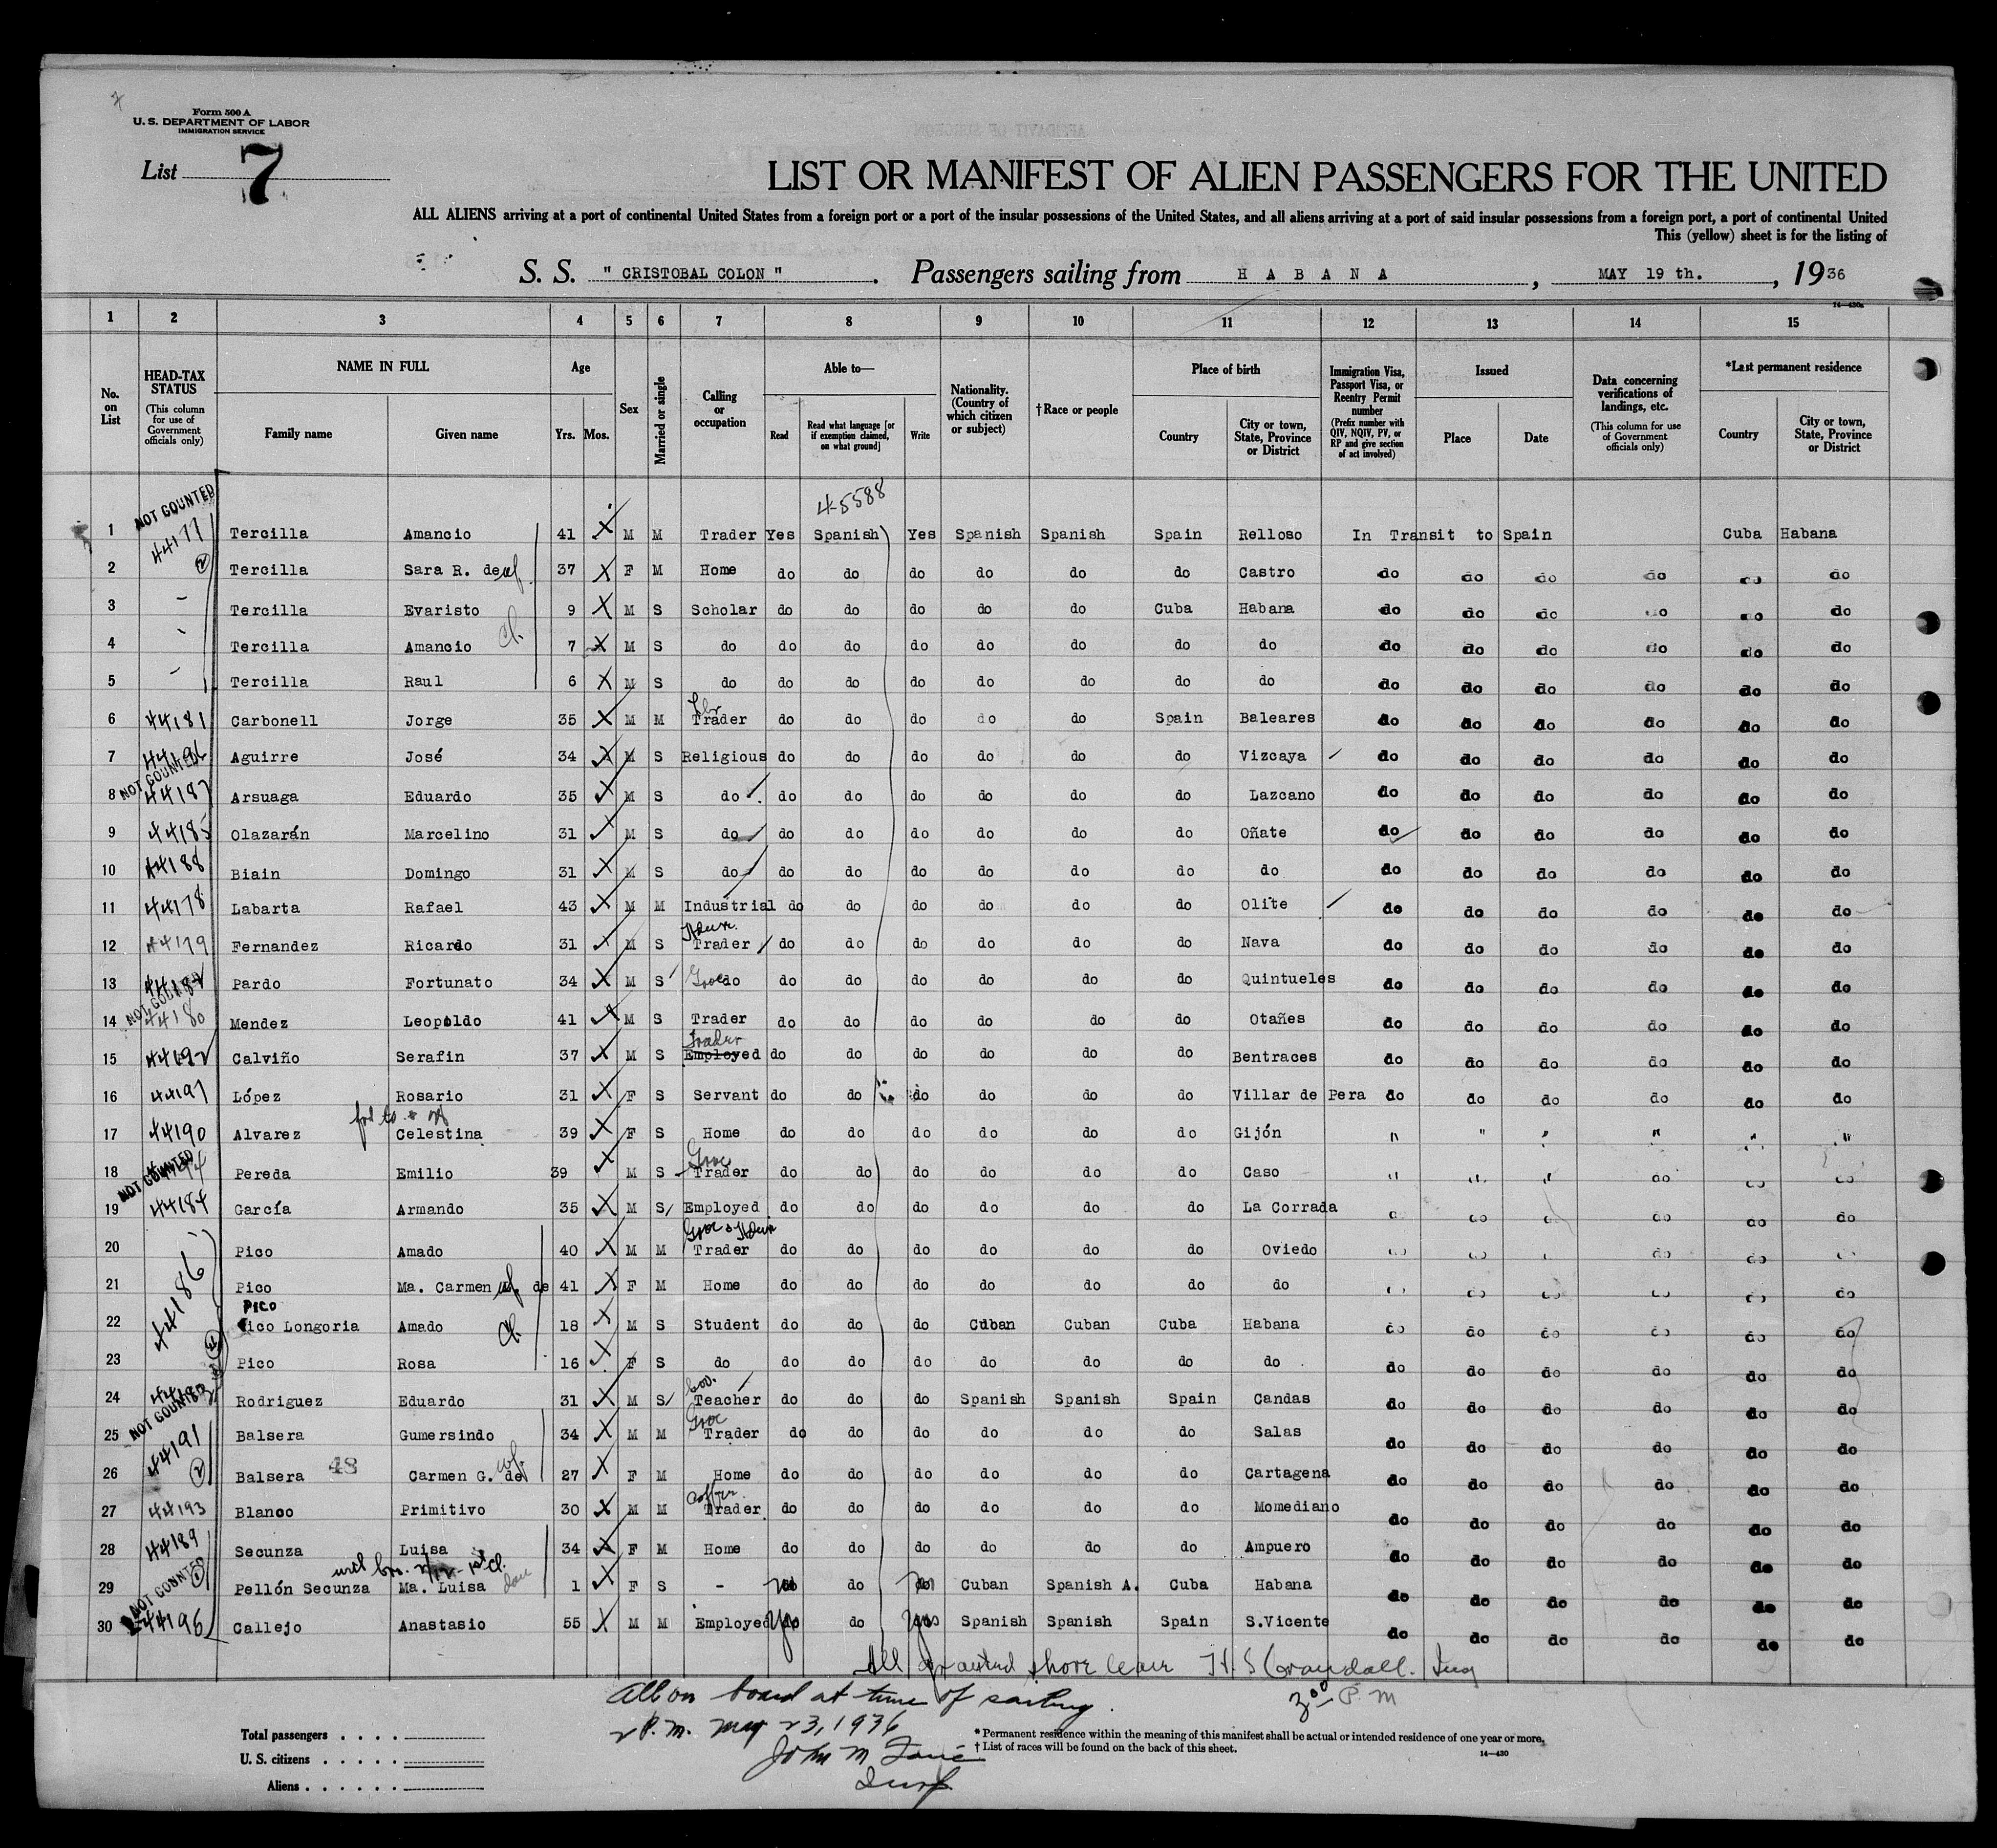 7
Form 500 A
U. S. DEPARTMENT OF LABOR
IMMIGRATION SERVICE
List 7
LIST OR MANIFEST OF ALIEN PASSENGERS FOR THE UNITED
ALL ALIENS arriving at a port of continental United States from a foreign port or a port of the insular possessions of the United States, and all aliens arriving at a port of said insular possessions from a foreign port, a port of continental United
This (yellow) sheet is for the listing of
S. S. " CRISTOBAL COLON " . Passengers sailing from H A B A N A , MAY 19 th. , 1936
14—430a
1 2 3 4 5 6 7 8 9 10 11 12 13 14 15
No. on List
HEAD-TAX STATUS (This column for use of Government officials only)
NAME IN FULL Family name Given name
Age Yrs. Mos.
Sex
Married or single
Calling or occupation
Able to— Read Read what language [or if exemption claimed, on what ground] Write
Nationality. (Country of which citizen or subject)
† Race or people
Place of birth Country City or town, State, Province or District
Immigration Visa, Passport Visa, or Reentry Permit number (Prefix number with QIV, NQIV, PV, or RP and give section of act involved)
Issued Place Date
Data concerning verifications of landings, etc. (This column for use of Government officials only)
*Last permanent residence Country City or town, State, Province or District
NOT COUNTED 4-5588
1 44177 Tercilla Amancio 41 M M Trader Yes Spanish Yes Spanish Spanish Spain Relloso In Transit to Spain Cuba Habana
2 Tercilla Sara R. de wf. 37 F M Home do do do do do do Castro do do do do do do
3 Tercilla Evaristo 9 M S Scholar do do do do do Cuba Habana do do do do do do
4 Tercilla Amancio Cl. 7 M S do do do do do do do do do do do do do do
5 Tercilla Raul 6 M S do do do do do do do do do do do do do do
6 44181 Carbonell Jorge 35 M M Trader do do do do do Spain Baleares do do do do do do
7 Aguirre José 34 M S Religious do do do do do do Vizcaya do do do do do do
NOT COUNTED
8 44187 Arsuaga Eduardo 35 M S do do do do do do do Lazcano do do do do do do
9 44185 Olazarán Marcelino 31 M S do do do do do do do Oñate do do do do do do
10 44188 Biain Domingo 31 M S do do do do do do do do do do do do do do
11 44178 Labarta Rafael 43 M M Industrial do do do do do do Olite do do do do do do
12 44179 Fernandez Ricardo 31 M S Trader do do do do do do Nava do do do do do do
13 Pardo Fortunato 34 M S Groc do do do do do do do Quintueles do do do do do do
NOT COUNTED
14 44180 Mendez Leopoldo 41 M S Trader do do do do do do Otañes do do do do do do
Trader
15 44192 Calviño Serafin 37 M S Employed do do do do do do Bentraces do do do do do do
16 44197 López Rosario 31 F S Servant do do do do do do Villar de Pera do do do do do do
17 44190 Alvarez Celestina 39 F S Home do do do do do do Gijón " " " " " "
Groc
18 Pereda Emilio 39 M S Trader do do do do do do Caso " " " do do do
NOT COUNTED
19 44184 García Armando 35 M S Employed do do do do do do La Corrada do do do do do do
Groc
20 Pico Amado 40 M M Trader do do do do do do Oviedo do do do do do do
21 44186 Pico Ma. Carmen wf. de 41 F M Home do do do do do do do do do do do do do
PICO
22 Pico Longoria Amado Cl. 18 M S Student do do do Cuban Cuban Cuba Habana do do do do do do
23 Pico Rosa 16 F S do do do do do do do do do do do do do do
24 Rodriguez Eduardo 31 M S Teacher do do do Spanish Spanish Spain Candas do do do do do do
NOT COUNTED Groc
25 44191 Balsera Gumersindo 34 M M Trader do do do do do do Salas do do do do do do
26 Balsera 48 Carmen G. de wf. 27 F M Home do do do do do do Cartagena do do do do do do
27 44193 Blanco Primitivo 30 M M Trader do do do do do do Momediano do do do do do do
28 44189 Secunza Luisa 34 F M Home do do do do do do Ampuero do do do do do do
29 Pellón Secunza Ma. Luisa 1 F S - do do do Cuban Spanish A. Cuba Habana do do do do do do
NOT COUNTED
30 44196 Callejo Anastasio 55 M M Employed yes do yes Spanish Spanish Spain S.Vicente do do do do do do
All granted shore leave H S Crandall. Insp
All on board at time of sailing. 3 00 P M
2 P.M. May 23, 1936
John M
Insp
Total passengers . . . .
U. S. citizens . . . . .
Aliens . . . . . .
* Permanent residence within the meaning of this manifest shall be actual or intended residence of one year or more.
† List of races will be found on the back of this sheet.
14—430